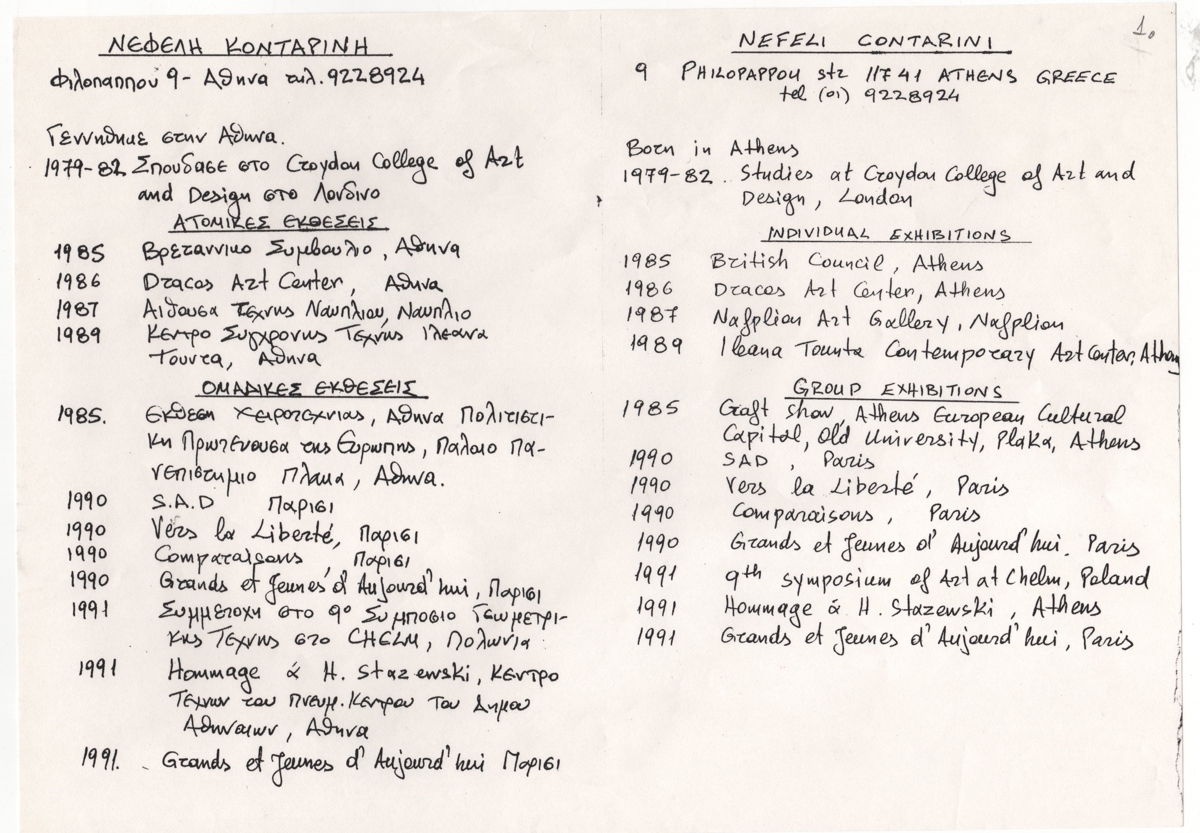 1.
ΝΕΦΕΛΗ ΚΟΝΤΑΡΙΝΗ
Φιλοπαππου 9 - Αθηνα τηλ. 9228924
Γεννηθηκε στην Αθηνα.
1979-82 Σπουδασε στο Croydon College of Art
and Design στο Λονδινο
ΑΤΟΜΙΚΕΣ ΕΚΘΕΣΕΙΣ
1985 Βρεταννικο Συμβουλιο, Αθηνα
1986 Dracos Art Center, Αθηνα
1987 Αιθουσα Τεχνης Ναυπλιου, Ναυπλιο
1989 Κεντρο Συγχρονης Τεχνης Ιλεανα
Τουντα, Αθηνα
ΟΜΑΔΙΚΕΣ ΕΚΘΕΣΕΙΣ
1985. Εκθεση χειροτεχνιας, Αθηνα Πολιτιστι-
κη Πρωτευουσα της Ευρωπης, Παλαιο Πα-
νεπιστημιο Πλακα, Αθηνα.
1990 S.A.D Παρισι
1990 Vers la Liberté, Παρισι
1990 Comparaisons, Παρισι
1990 Grands et Jeunes d'Aujourd'hui, Παρισι
1991 Συμμετοχη στο 9ο Συμποσιο Γεωμετρι-
κης Τεχνης στο CHELM, Πολωνια
1991 Hommage á H. Stazewski, Κεντρο
Τεχνων του Πνευμ. Κεντρου του Δημου
Αθηναιων, Αθηνα
1991. Grands et Jeunes d'Aujourd'hui Παρισι
NEFELI CONTARINI
9 PHILOPAPPOU str 11741 ATHENS GREECE
tel (01) 9228924
Born in Athens
1979-82. Studies at Croydon College of Art and
Design, London
INDIVIDUAL EXHIBITIONS
1985 British Council, Athens
1986 Dracos Art Center, Athens
1987 Nafplion Art Gallery, Nafplion
1989 Ileana Tounta Contemporary Art Center, Athens
GROUP EXHIBITIONS
1985 Craft show, Athens European Cultural
Capital, Old University, Plaka, Athens
1990 SAD, Paris
1990 Vers la Liberté, Paris
1990 Comparaisons, Paris
1990 Grands et Jeunes d'Aujourd'hui. Paris
1991 9th symposium of Art at Chelm, Poland
1991 Hommage á H. Stazewski, Athens
1991 Grands et Jeunes d'Aujourd'hui, Paris